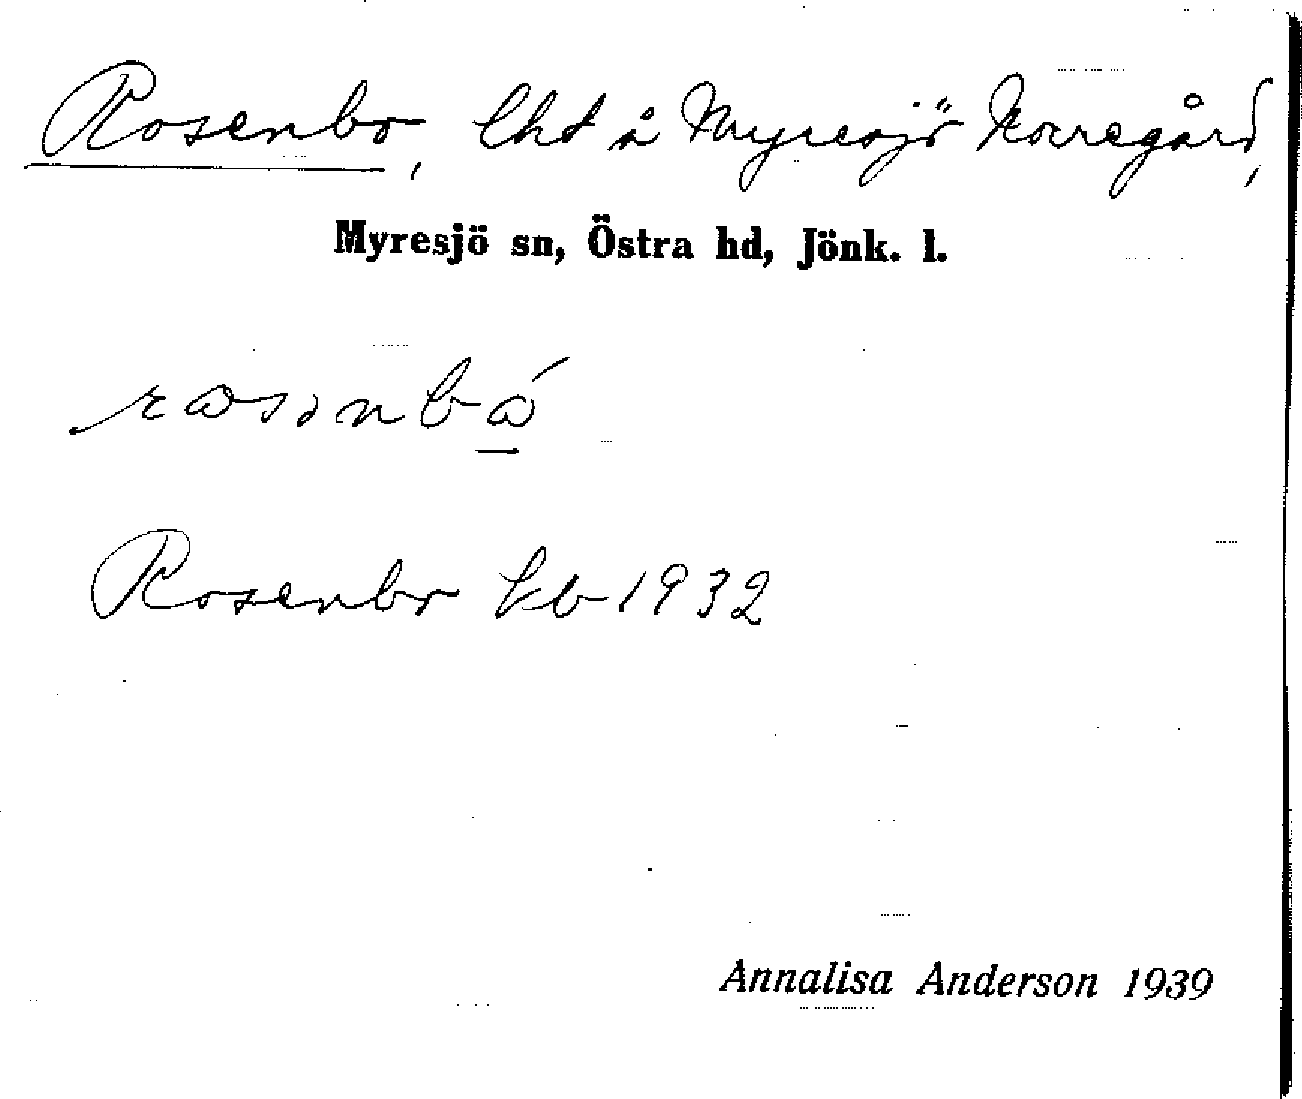 Rosenbo, lht å Myresjö Norregård,
Myresjö sn, Östra hd, Jönk. l.
Rosenbo kb 1932
Annalisa Anderson 1939